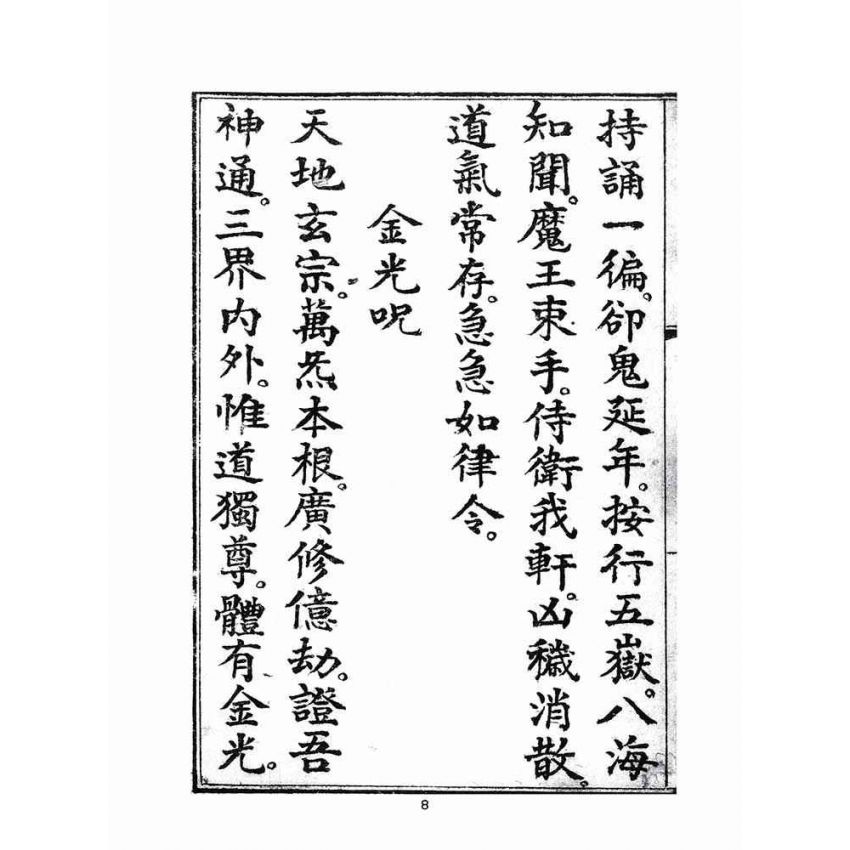 持誦一徧。卻鬼延年。按行五嶽。八海
知聞。魔王束手。侍衛我軒。凶穢消散。
道氣常存。急急如律令。
金光呪
天地玄宗。萬炁本根。廣修億劫。證吾
神通。三界内外。惟道獨尊。體有金光。
8